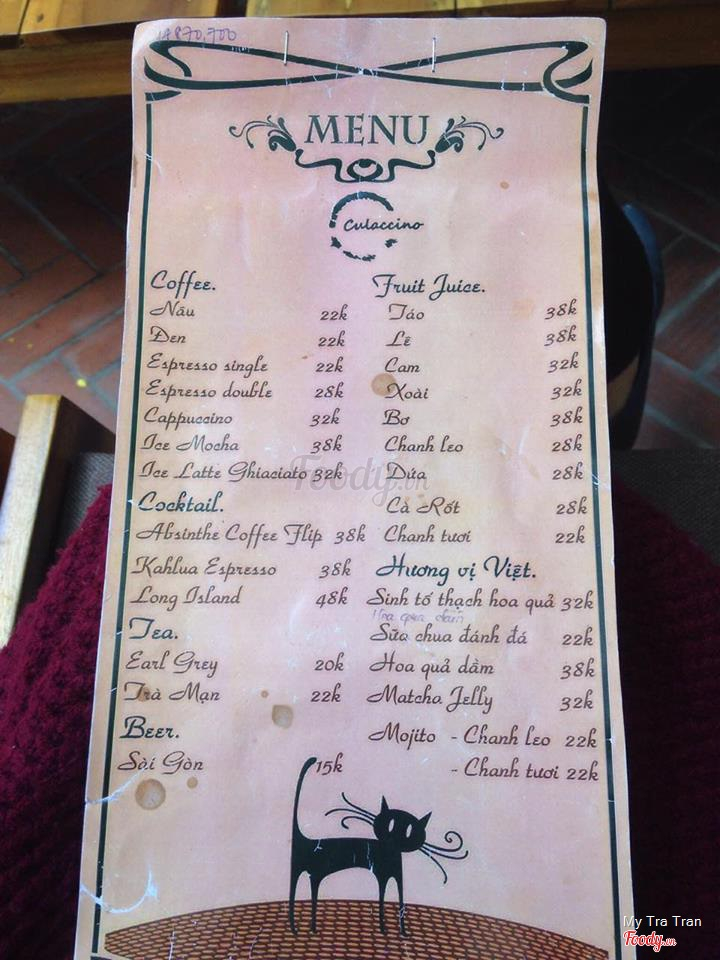 MENU
Culaccino
Coffee.
Nâu 22k
Đen 22k
Espresso single 22k
Espresso double 28k
Cappuccino 32k
Ice Mocha 38k
Ice Latte Ghiaciato 32k
Cocktail.
Absinthe Coffee Flip 38k
Kahlua Espresso 38k
Long Island 48k
Tea.
Earl Grey 20k
Trà Mạn 22k
Beer.
Sài Gòn 15k
Fruit Juice.
Táo 38k
Lê 38k
Cam 32k
Xoài 32k
Bơ 38k
Chanh leo 28k
Dứa 28k
Cà Rốt 28k
Chanh tươi 22k
Hương vị Việt.
Sinh tố thạch hoa quả 32k
Sữa chua đánh đá 22k
Hoa quả dầm 38k
Matcha Jelly 32k
Mojito - Chanh leo 22k
- Chanh tươi 22k
Foody.vn
My Tra Tran
Foody.vn